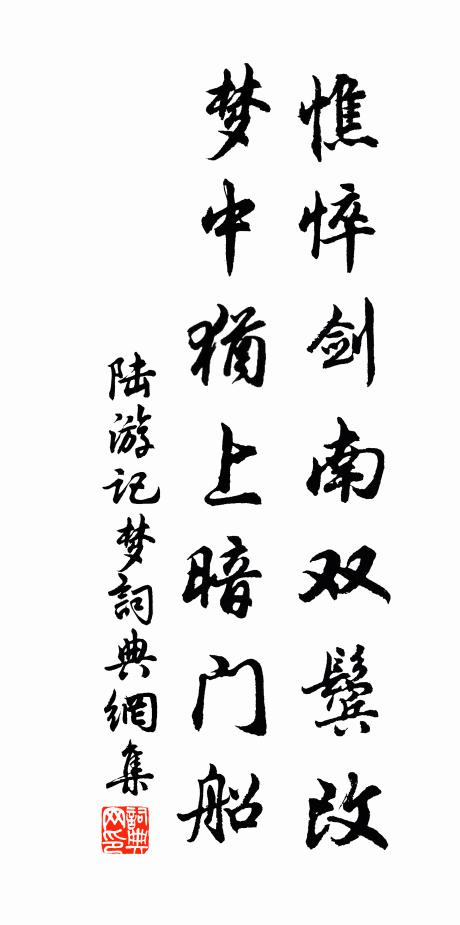 憔悴剑南双鬓改
梦中猶上暗门船
陆游记梦詞典網集
詞典网印